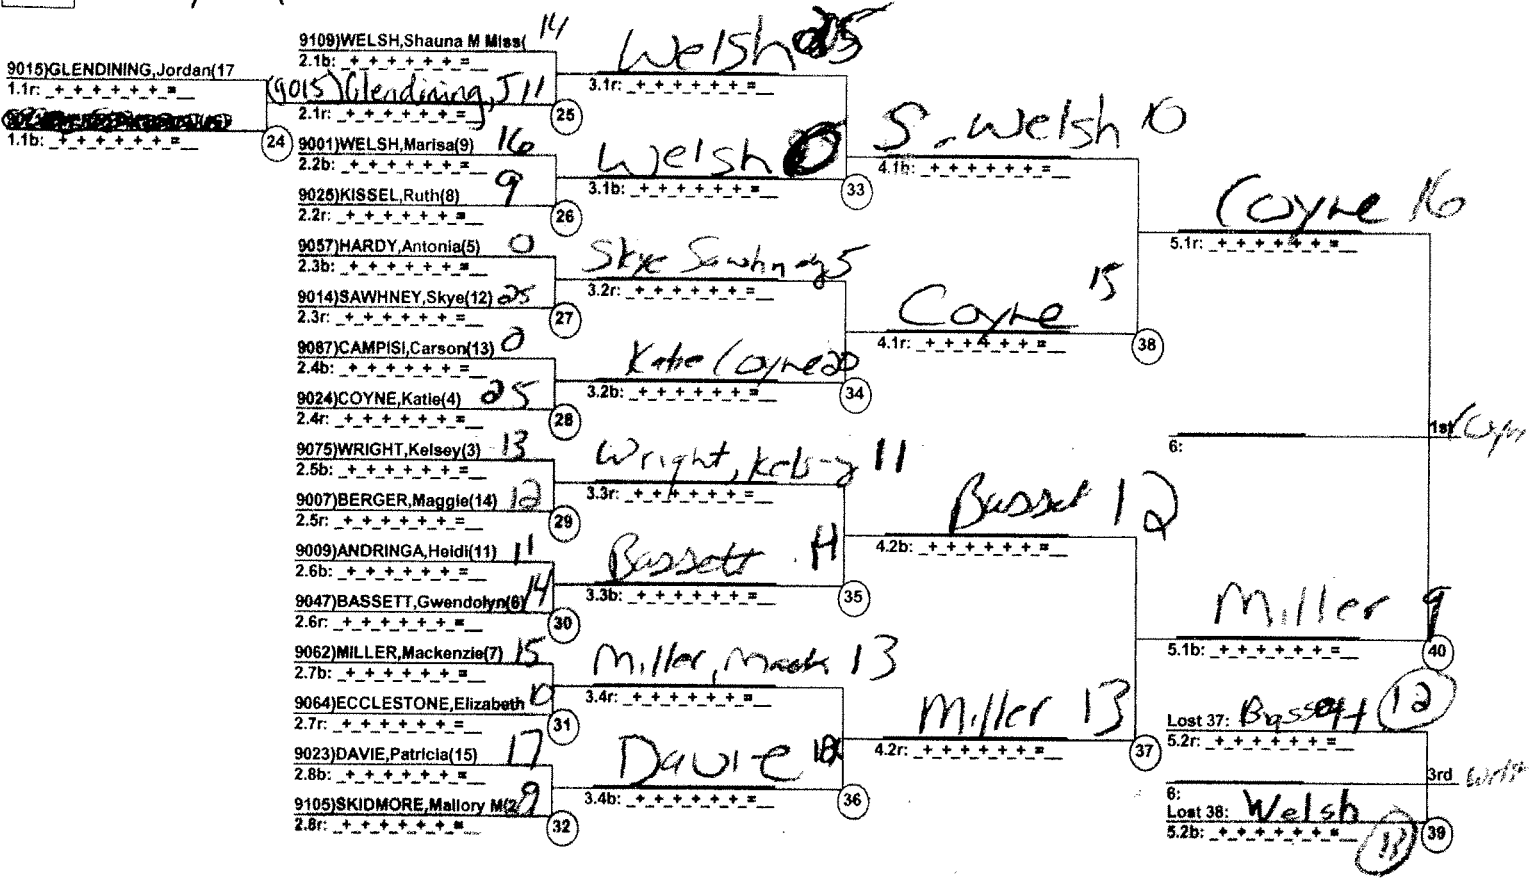 9015)GLENDINING,Jordan(17
1.1r: _+_+_+_+_+_+_=__
1.1b: _+_+_+_+_+_+_=__
24
9109)WELSH,Shauna M Miss( 14
2.1b: _+_+_+_+_+_+_=__
(9015) Glendining, J 11
2.1r: _+_+_+_+_+_+_=__
25
9001)WELSH,Marisa(9) 16
2.2b: _+_+_+_+_+_+_=__
9025)KISSEL,Ruth(8) 9
2.2r: _+_+_+_+_+_+_=__
26
9057)HARDY,Antonia(5) 0
2.3b: _+_+_+_+_+_+_=__
9014)SAWHNEY,Skye(12) 25
2.3r: _+_+_+_+_+_+_=__
27
9087)CAMPISI,Carson(13) 0
2.4b: _+_+_+_+_+_+_=__
9024)COYNE,Katie(4) 25
2.4r: _+_+_+_+_+_+_=__
28
9075)WRIGHT,Kelsey(3) 13
2.5b: _+_+_+_+_+_+_=__
9007)BERGER,Maggie(14) 12
2.5r: _+_+_+_+_+_+_=__
29
9009)ANDRINGA,Heidi(11) 11
2.6b: _+_+_+_+_+_+_=__
9047)BASSETT,Gwendolyn(6) 14
2.6r: _+_+_+_+_+_+_=__
30
9062)MILLER,Mackenzie(7) 15
2.7b: _+_+_+_+_+_+_=__
9064)ECCLESTONE,Elizabeth 10
2.7r: _+_+_+_+_+_+_=__
31
9023)DAVIE,Patricia(15) 17
2.8b: _+_+_+_+_+_+_=__
9105)SKIDMORE,Mallory M(2 9
2.8r: _+_+_+_+_+_+_=__
32
Welsh 25
3.1r: _+_+_+_+_+_+_=__
Welsh 0
3.1b: _+_+_+_+_+_+_=__
33
Skye Sawhney 5
3.2r: _+_+_+_+_+_+_=__
Katie Coyne 20
3.2b: _+_+_+_+_+_+_=__
34
Wright, Kelsey 11
3.3r: _+_+_+_+_+_+_=__
Bassett 14
3.3b: _+_+_+_+_+_+_=__
35
Miller, Mack 13
3.4r: _+_+_+_+_+_+_=__
Davie
3.4b: _+_+_+_+_+_+_=__
36
S. Welsh 10
4.1b: _+_+_+_+_+_+_=__
Coyne 15
4.1r: _+_+_+_+_+_+_=__
38
Basset 12
4.2b: _+_+_+_+_+_+_=__
Miller 13
4.2r: _+_+_+_+_+_+_=__
37
Coyne 16
5.1r: _+_+_+_+_+_+_=__
1st Coyn
6:
Miller 9
5.1b: _+_+_+_+_+_+_=__
40
Lost 37: Bassett 12
5.2r: _+_+_+_+_+_+_=__
3rd
6:
Lost 38: Welsh 13
5.2b: _+_+_+_+_+_+_=__
39